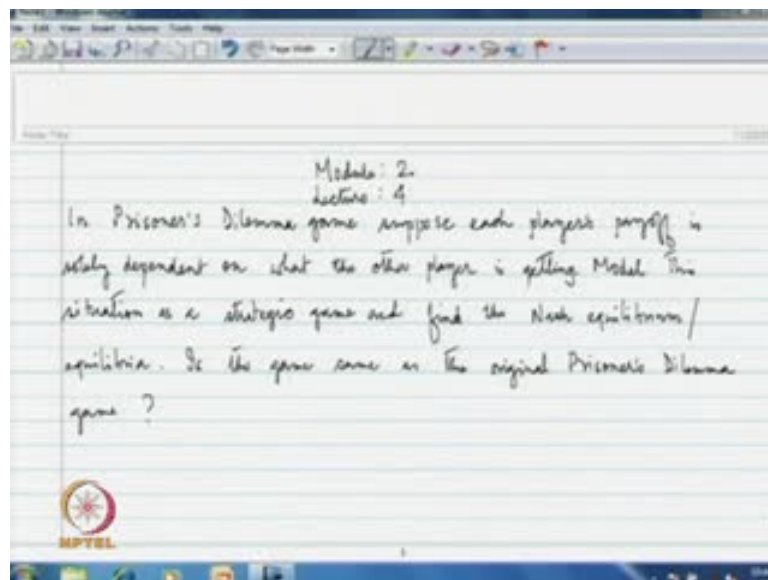 Edit View Insert Actions Tools Help
Page Width
Note Title
Module : 2.
Lecture : 4
In Prisoner's Dilemma game suppose each player's payoff is
solely dependent on what the other player is getting Model This
situation as a strategic game and find the Nash equilibrium/
equilibria. Is the game same as the original Prisoner's Dilemma
game ?
NPTEL